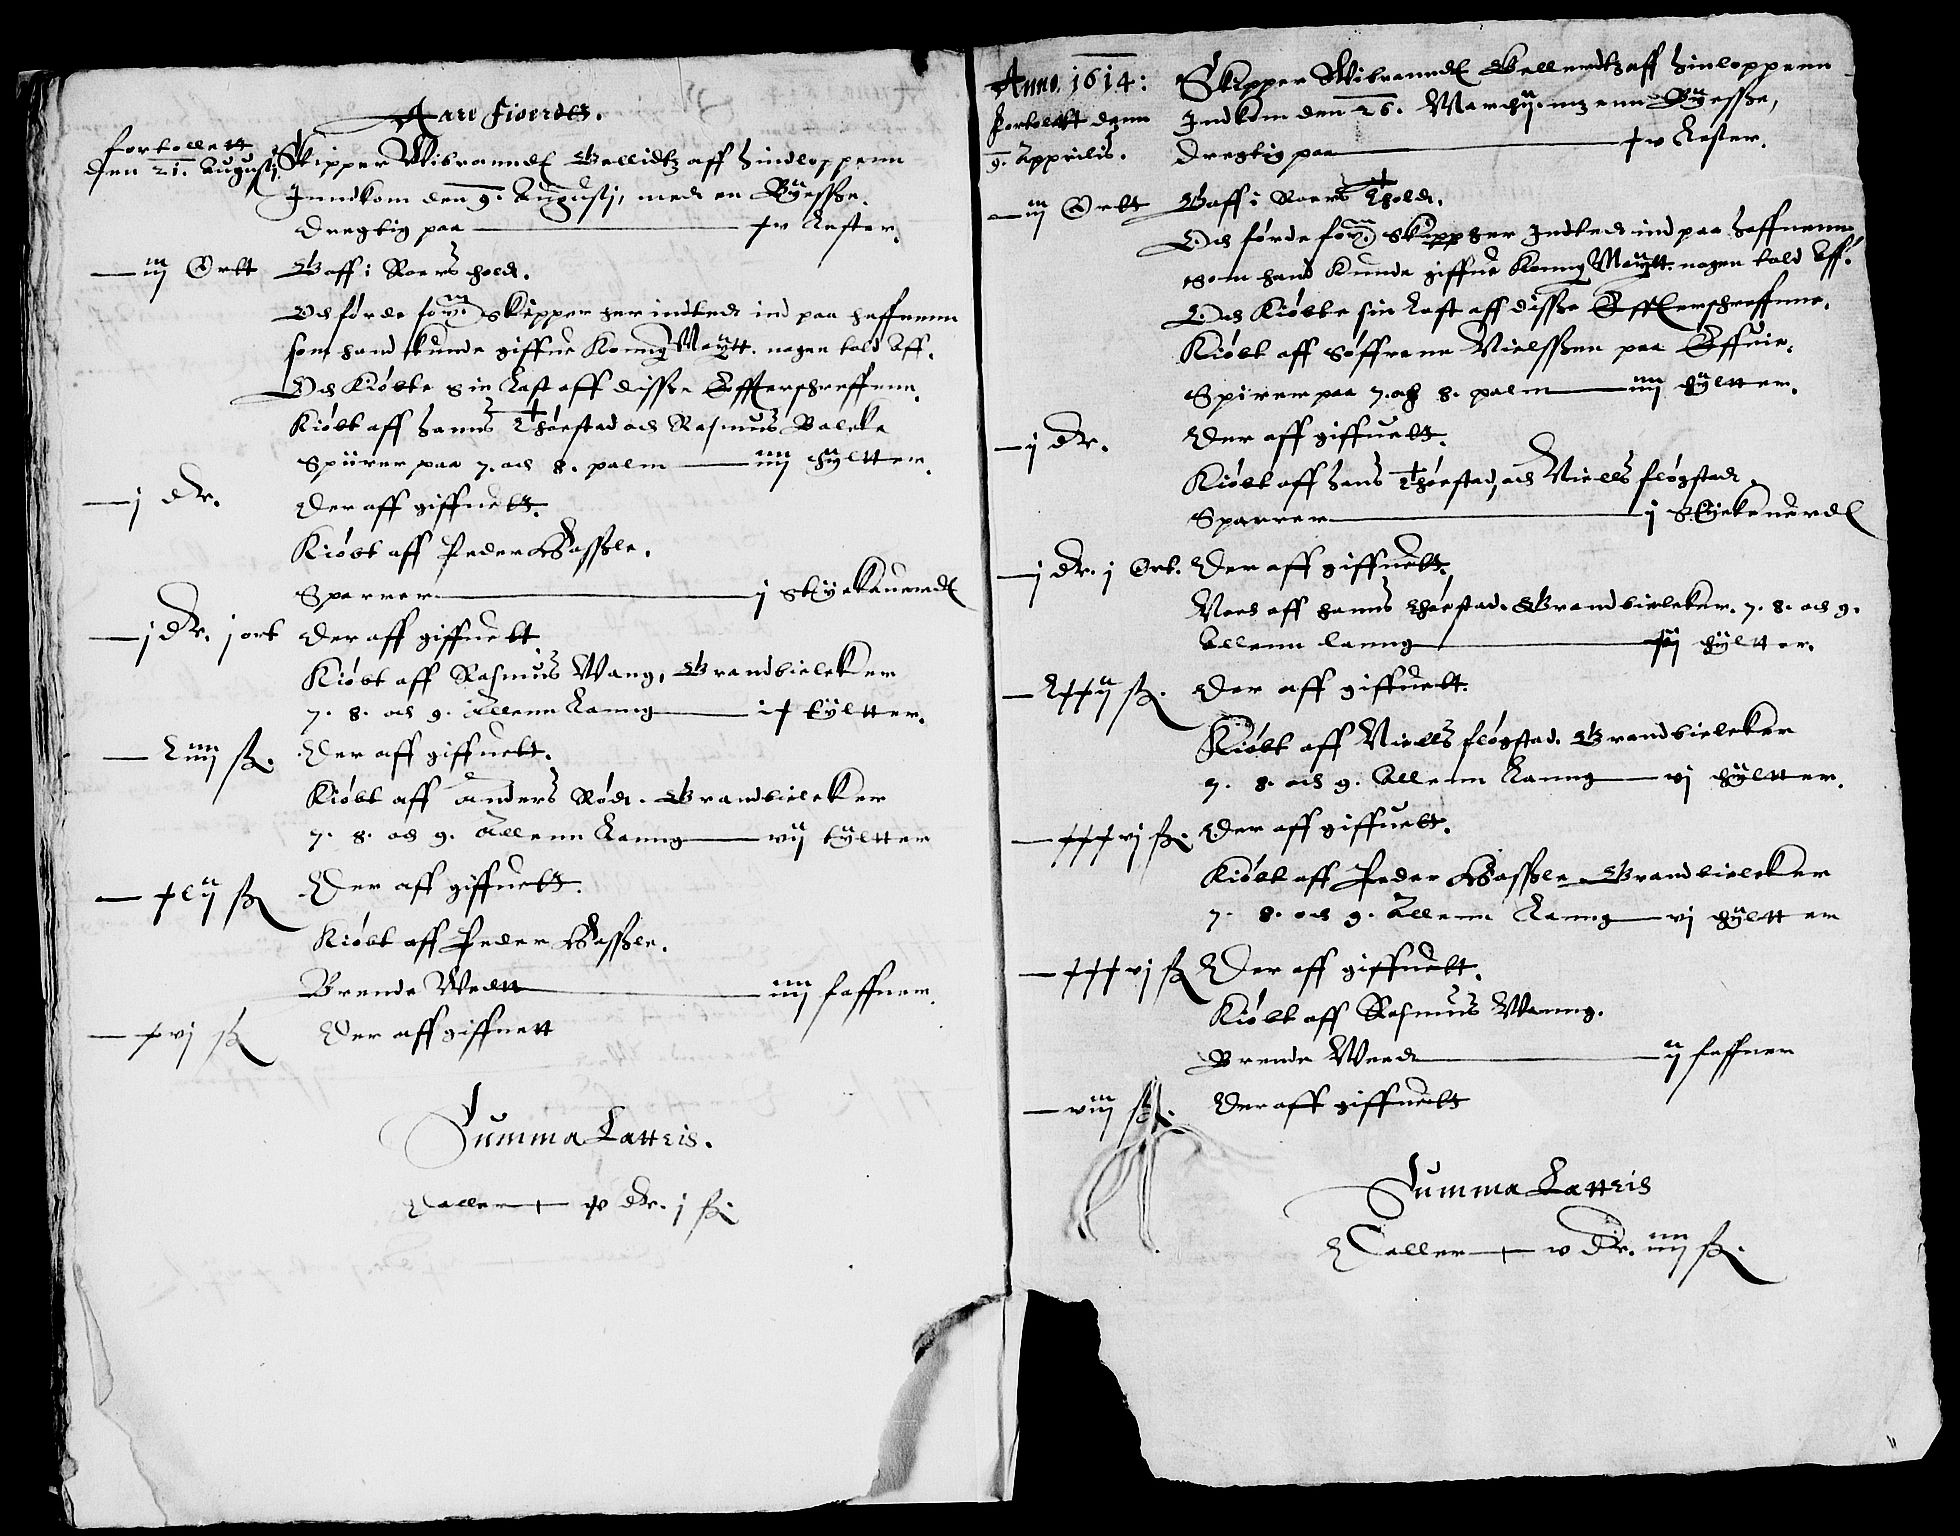 Aarefiordt.
fortollett
den 21. Augustj.
Skipper Wibranndt Gellidtz aff Hindloppenn
Inndkom den 9. Augustj, med en Bÿessze.
Dregtig paa — xv Lester.
— iij Ortt Gaff i Roers hold.
Och førde forne Skipper her indted ind paa haffnenn
som hand kunde giffue Konng Maÿtt. nogen told aff.
Och Kiøbte sin Last aff disse Effterschreffnne.
Kiøbt aff Hanns Thøestad och Rasmus Balcke
Spiirer paa 7. och 8. palm — iiij tÿltter.
— j dr. Der aff giffuett.
Kiøbt aff Peder Hassle.
Sparrer — j Stÿckeuerdt
— j dr. j ort Der aff giffuett
Kiøbt aff Rasmus Wang, Grandbielcker
7. 8. och 9. Allenn Lanng — ix tÿltter.
— Liiij ß. Der aff giffuett.
Kiøbt aff Anders Røde. Grandbielcker
7. 8. och 9. Allenn Lanng — vij tÿltter
— xlij ß Der aff giffuett.
Kiøbt aff Peder Hassle.
Brende Wedtt — iiij faffner.
— xvj ß Der aff giffuett
Summa Latteris.
Daller — v dr. j ß.
Anno. 1614:
Fortolett denn
9. Apprilis.
Skipper Wibranndt Gellerdtz aff Hinloppenn
Indkom den 26. Martÿ. mz enn Bÿessze,
Dregtig paa — xv Lester.
— iij Ortt Gaff i Roers Thold.
Och førde forne Skipper her Indted ind paa Haffnenn
som hand kunde giffue Konng Maÿtt. nogen told Aff.
Och Kiøbte sin Last aff disse Effterschreffnne.
Kiøbt aff Søffrenn Nielsszen paa Effuie.
Spirer paa 7. och 8. palm — iiij tÿltter.
— j dr. Der aff giffuett.
Kiøbt aff Hans Thøestad, och Niells Fløgstad.
Sparrer — j Stÿckeuerdt
— j dr. j Ort. Der aff giffuett.
Noch aff Hanns Thøestad. Grandbielcker. 7. 8. och 9.
Allenn lanng — xij tÿltter.
— Lxxij ß. Der aff giffuett.
Kiøbt aff Niells Fløgstad. Grandbielcker
7. 8. och 9. Allenn Lanng — vj tÿltter.
— xxxvj ß. Der aff giffuett.
Kiøbt aff Peder Hassle Grandbielcker
7. 8. och 9. Allenn Lanng — vj tÿltter
— xxxvj ß Der aff giffuett.
Kiøbt aff Rasmus Wanng.
Brende Weed — ij faffner
— viij ß. Der aff giffuett
Summa Latteris
Daller — v dr. iiij ß.